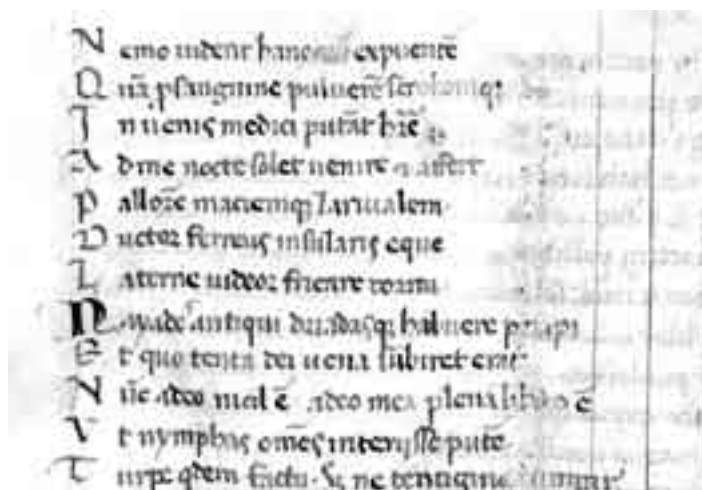 Nemo uident hanc expuentē
Quā p sanguine puluerē scrobomq;
In uenis medici putāt hr̄e
Ad me nocte solet uenire & affert
Pallorē maciemq; laruualem
Ductor ferreus insularis eque
Laterne uideor fricare cornu
Nayade antiqui driadasq; habuere priapi
Et quo tenta dei uena subiret erat
Nūc adeo nicħl ē adeo mea plena libido ē
Vt nymphas om̄es interisse putē
Turpe qdem factu. S; ne tentigine rumpar